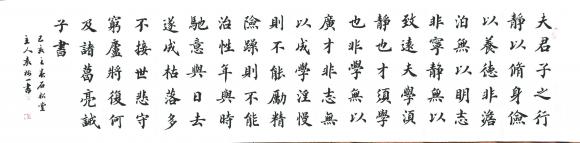 夫君子之行
静以脩身儉
以養德非澹
泊無以明志
非寧静無以
致遠夫學湏
静也才須學
也非學無以
廣才非志無
以成學淫慢
則不能勵精
險躁則不能
治性年與時
馳意與日去
遂成枯落多
不接世悲守
窮廬將復何
及諸葛亮誡
子書
己亥之春石松堂
主人袁書